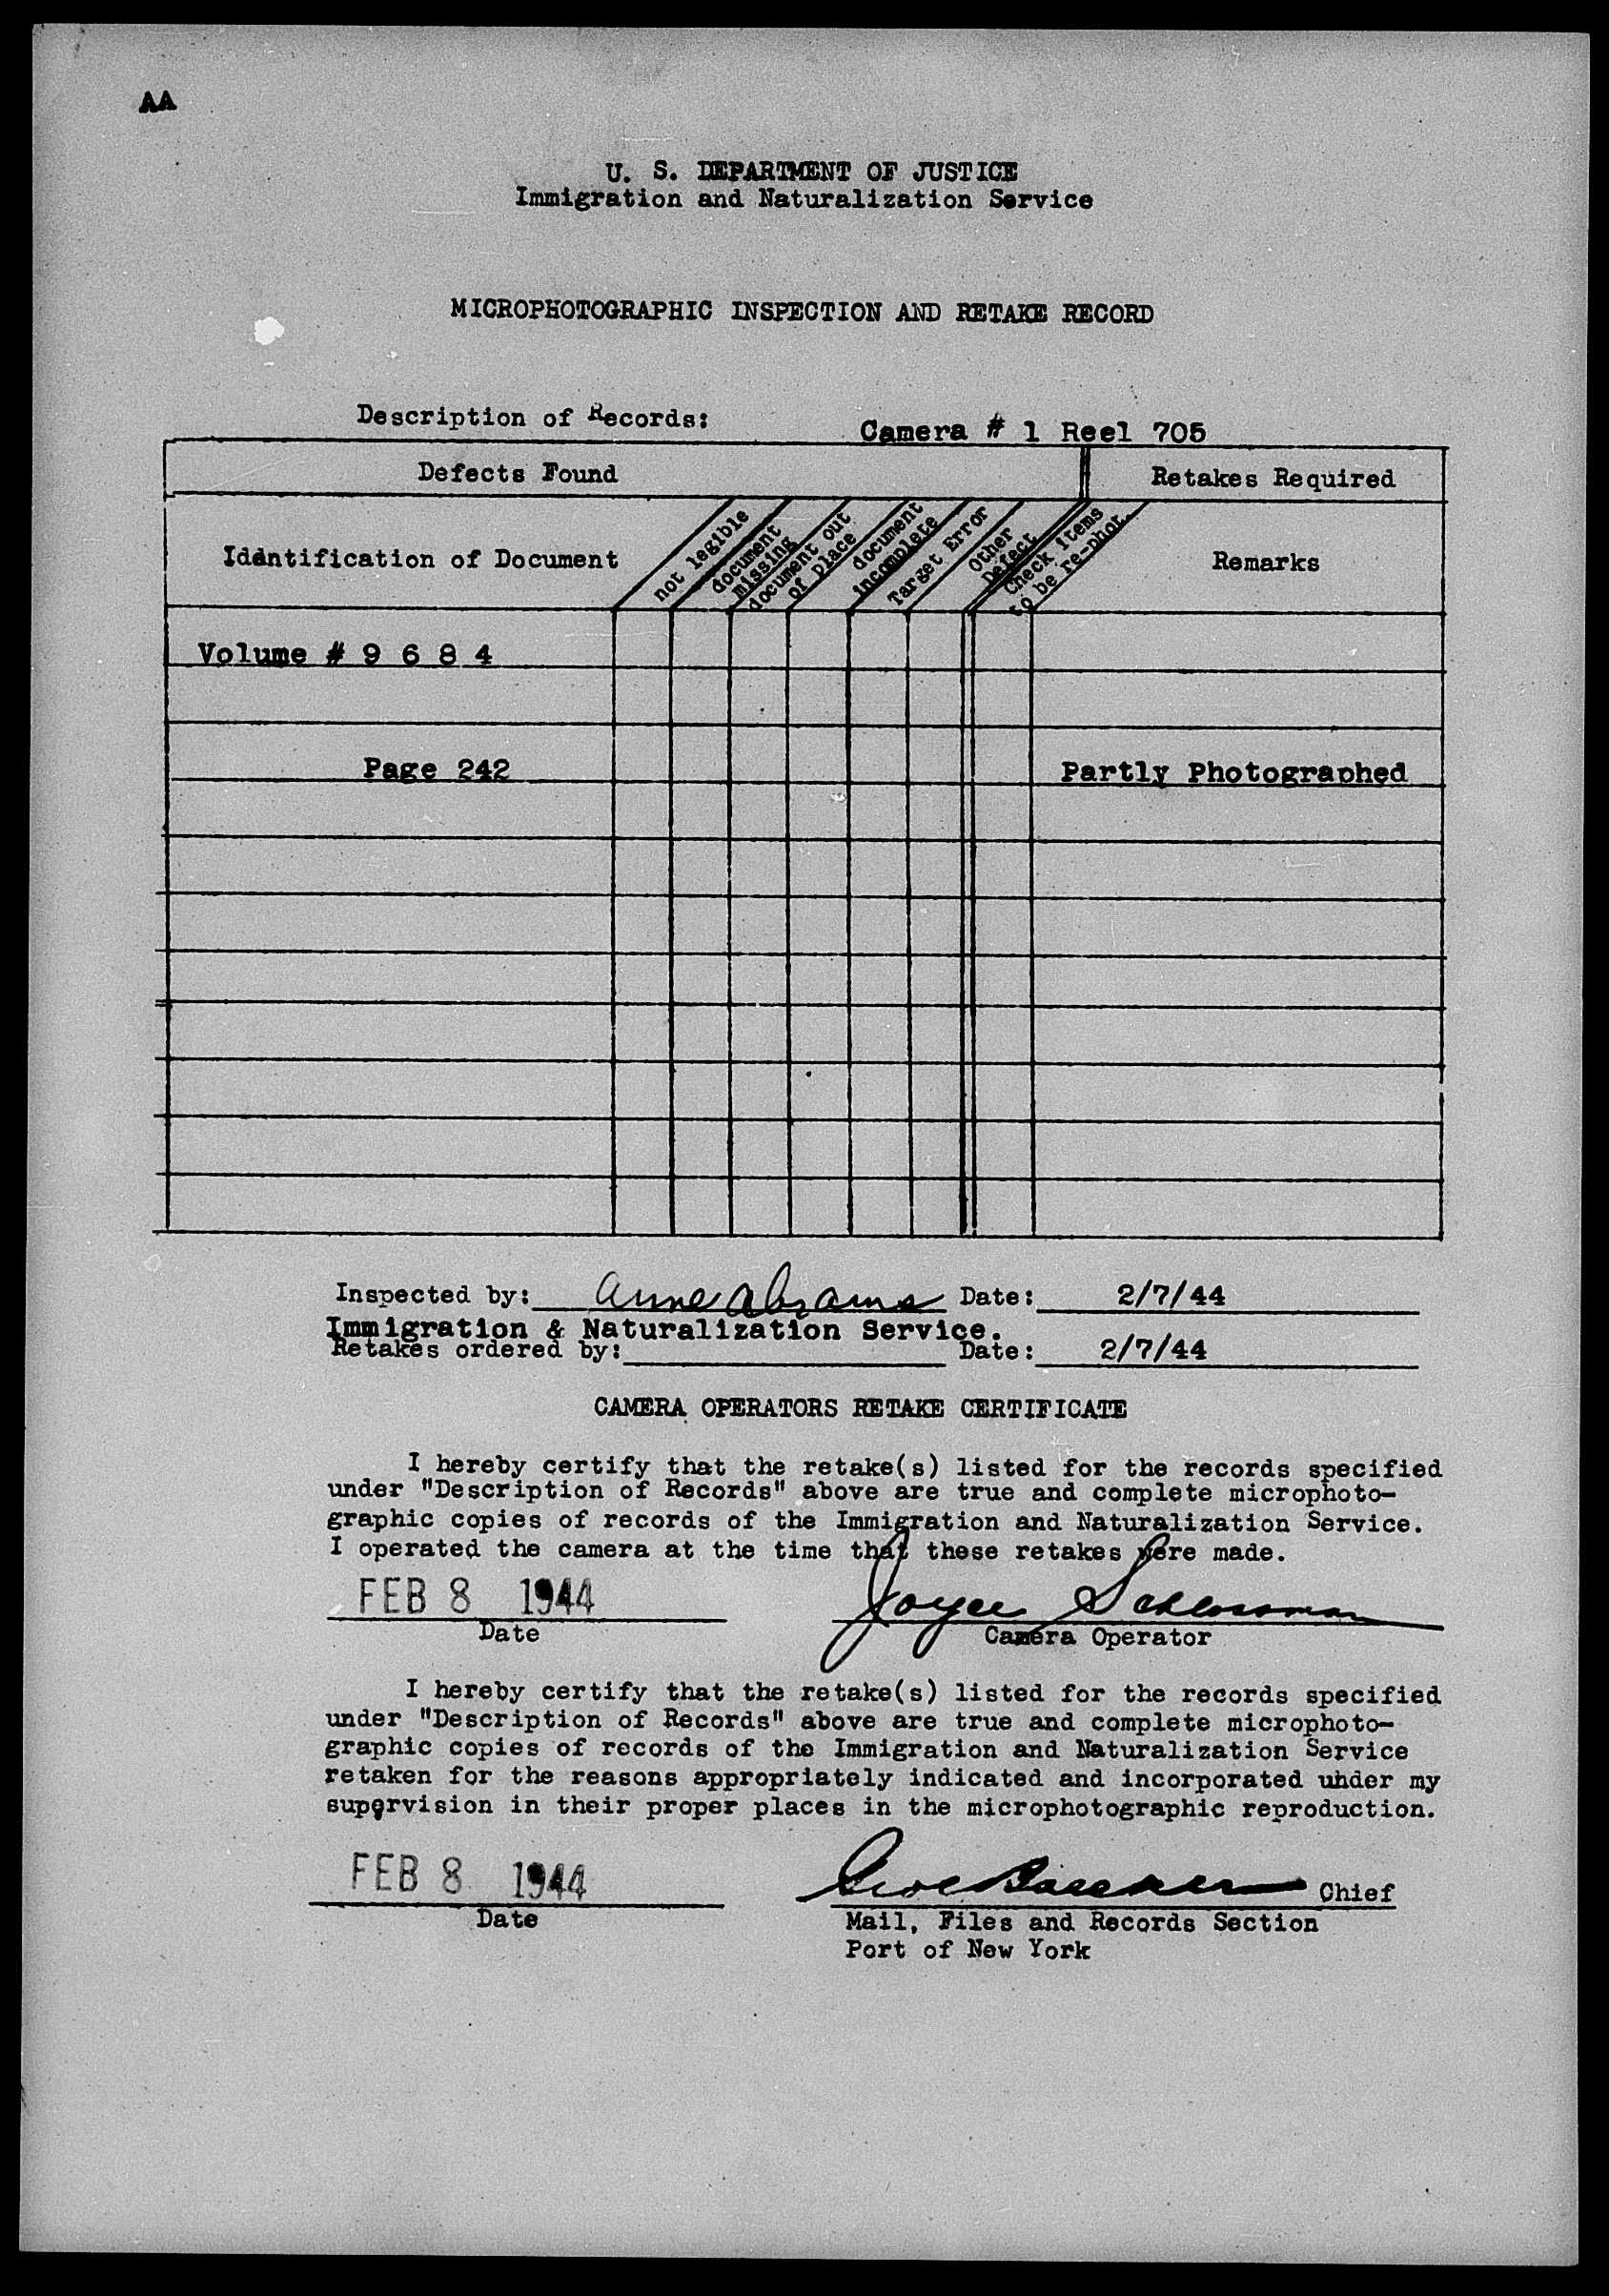 AA
U. S. DEPARTMENT OF JUSTICE
Immigration and Naturalization Service
MICROPHOTOGRAPHIC INSPECTION AND RETAKE RECORD
Description of Records: Camera # 1 Reel 705
Defects Found Retakes Required
Identification of Document
not legible
document
missing
document out
of place
document
incomplete
Target Error
Other
Defect
Check items
to be re-phot.
Remarks
Volume # 9 6 8 4
Page 242 Partly Photographed
Inspected by: Anne Abrams Date: 2/7/44
Immigration & Naturalization Service.
Retakes ordered by: Date: 2/7/44
CAMERA OPERATORS RETAKE CERTIFICATE
I hereby certify that the retake(s) listed for the records specified
under "Description of Records" above are true and complete microphoto-
graphic copies of records of the Immigration and Naturalization Service.
I operated the camera at the time that these retakes were made.
FEB 8 1944 Joyce Schlossman
Date Camera Operator
I hereby certify that the retake(s) listed for the records specified
under "Description of Records" above are true and complete microphoto-
graphic copies of records of the Immigration and Naturalization Service
retaken for the reasons appropriately indicated and incorporated under my
supervision in their proper places in the microphotographic reproduction.
FEB 8 1944 Chief
Date Mail, Files and Records Section
Port of New York